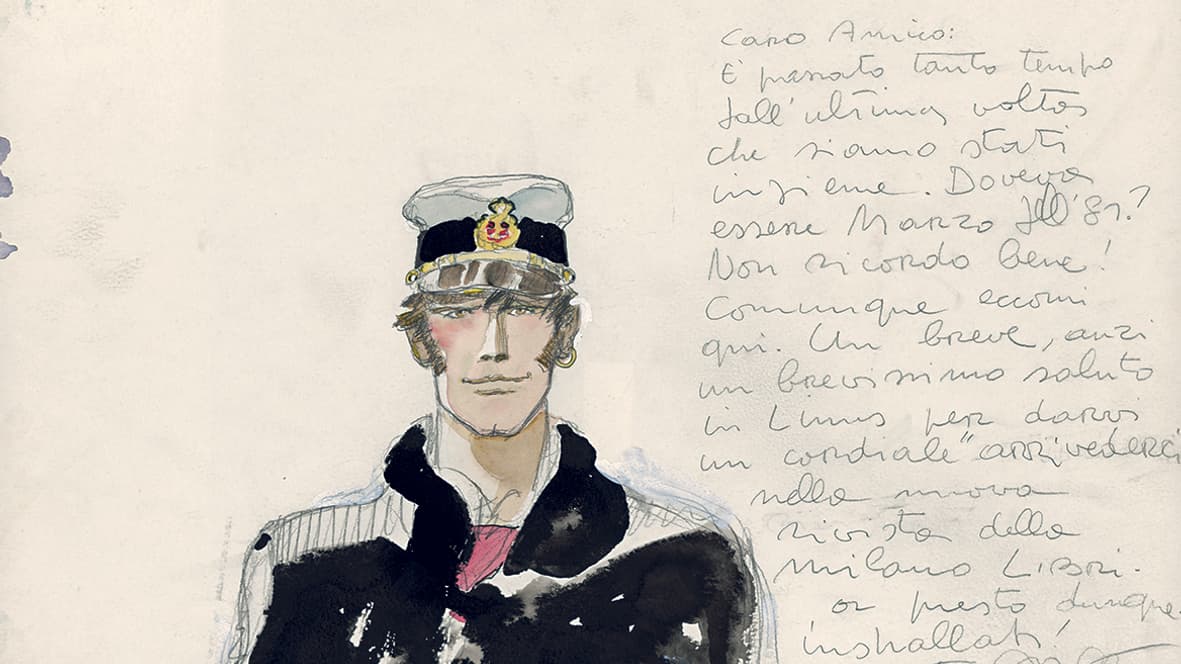 Caro Amico:
E' passato tanto tempo
dall'ultima volta
che siamo stati
insieme. Doveva
essere Marzo dell'81?
Non ricordo bene!
Comunque eccomi
qui. Un breve, anzi
un brevissimo saluto
in Linus per darvi
un cordiale "arrivederci
nella nuova
rivista della
Milano Libri.
a presto dunque.
inshallah!